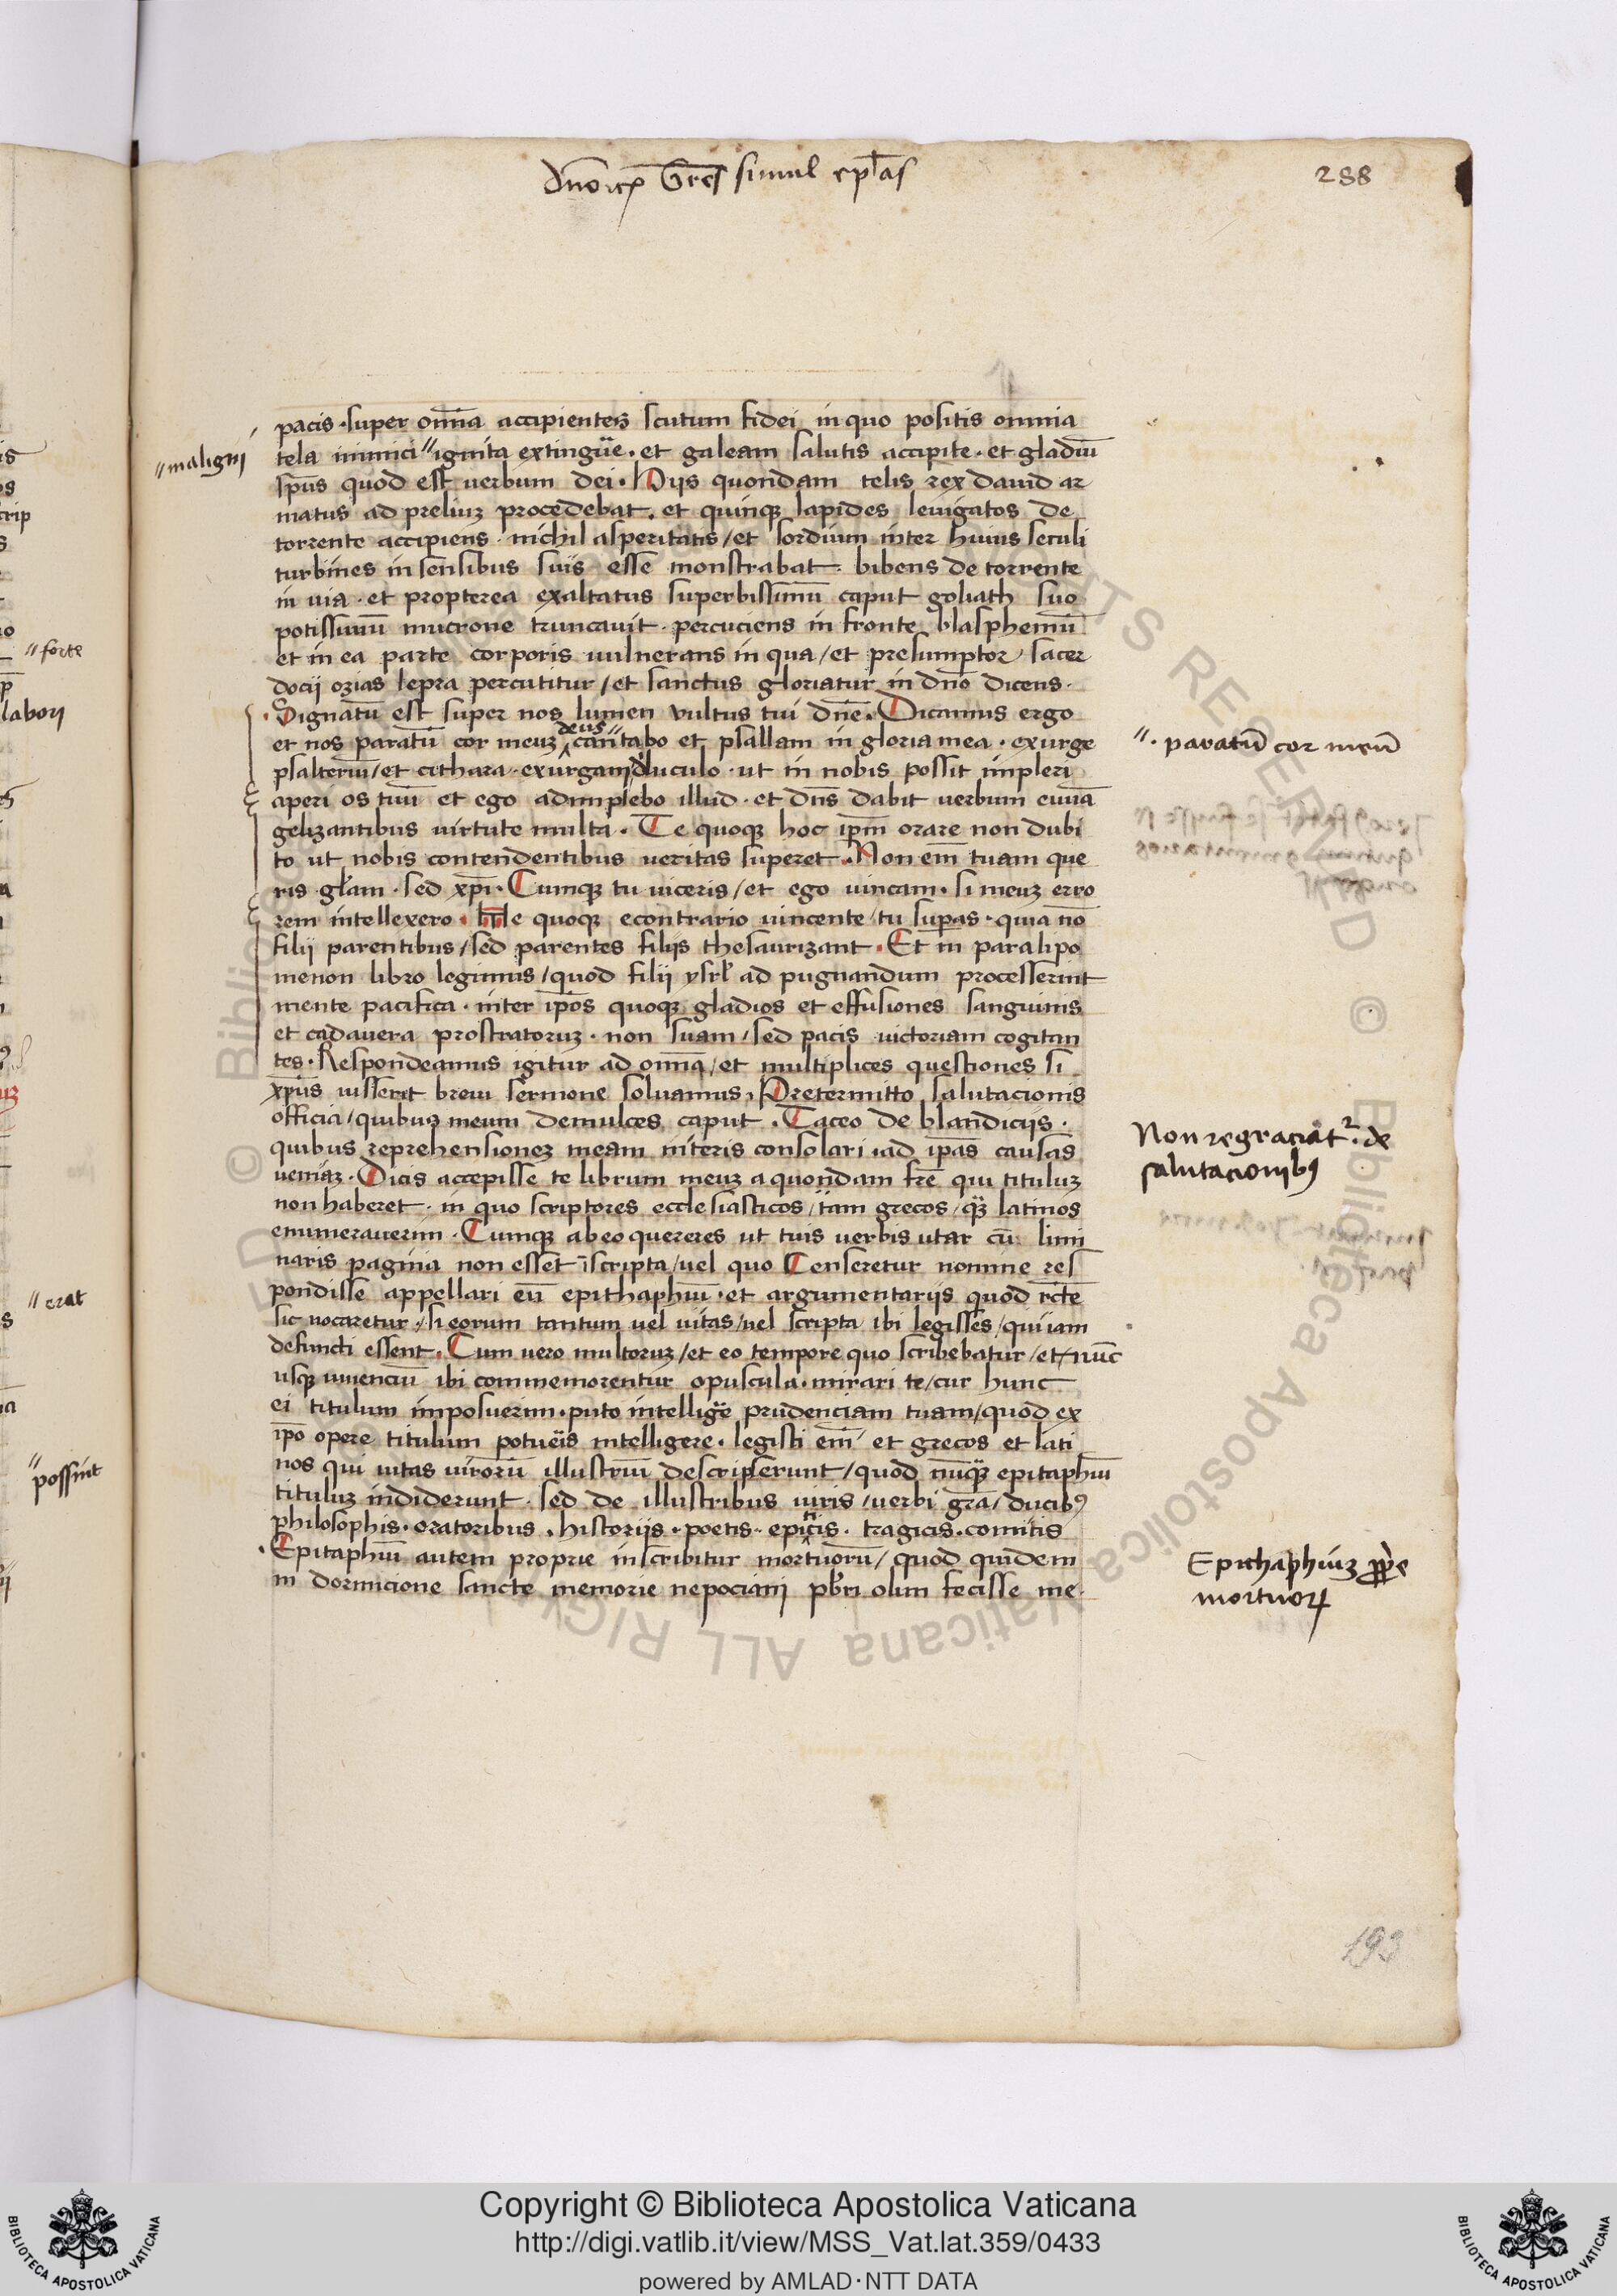 288
pacis · super om̄ia accipientes scutum fidei in quo positis omnia
"maligni
tela inimici "ignita extingūe · et galeam salutis accipite · et gladiū
sp̄us quod est uerbum dei · Hijs quondam telis rex dauid ar
matus ad preliuꝫ procedebat · et quinqꝫ lapides leuigatos de
torrente accipiens · nichil asperitatis / et sordium inter huius seculi
turbines in sensibus suis esse monstrabat · bibens de torrente
in uia · et propterea exaltatus superbissimū caput goliath suo
potissimū mucrone truncauit · percuciens in fronte blasphemū
et in ea parte corporis uulnerans in qua / et presumptor sacer
docij ozias lepra percutitur / et sanctus gloriatur in dn̄o dicens ·
Signatū est super nos lumen vultus tui dn̄e · Dicamus ergo
et nos paratū cor meuꝫ deus "cantabo et psallam in gloria mea · exurge
"· paratū cor meū
psalteriū / et cithara · exurgam diluculo · ut in nobis possit impleri
aperi os tuū et ego adimplebo illud · et dn̄s dabit uerbum euuā
gelizantibus uirtute multa · Te quoqꝫ hoc ip̄m orare non dubi
to ut nobis contendentibus ueritas superet · Non em̄ tuam que
ris gl̄am · sed xp̄i · Cumqꝫ tu uiceris / et ego uincam · si meuꝫ erro
rem intellexero · Me quoqꝫ econtrario uincente / tu sup̄as · quia nō
filij parentibus / sed parentes filijs thesaurizant · Et in paralipo
menon libro legimus / quod filij ysrl̄ ad pugnandum processerint
mente pacifica · inter ip̄os quoqꝫ gladios et effusiones sanguinis
et cadauera prostratoruꝫ · non suam / sed pacis uictoriam cogitan
tes · Respondeamus igitur ad om̄ia / et multiplices questiones si
xp̄us iusserit breui sermone soluamus · Pretermitto salutacionis
officia / quibus meum demulces caput · Taceo de blandicijs ·
Non regraciat᷑ · de
salutacionibꝰ
quibus reprehensioneꝫ meam niteris consolari · ad ip̄as causas
ueniaꝫ · Dicis accepisse te librum meuꝫ a quondam fr̄e qui tituluꝫ
non haberet · in quo scriptores ecclesiasticos / tam grecos / qꝫ̄ latinos
enumerauerim · Cumqꝫ ab eo quereres ut tuis uerbis utar cū limi
naris pagina non esset īscripta / uel quo Censeretur nomine res
pondisse appellari eū epithaphiū · et argumentarijs quod rc̄te
sic uocaretur · si eorum tantum uel uitas / uel scripta ibi legisses / qui iam
defuncti essent · Cum uero multoruꝫ / et eo tempore quo scribebatur / et nūc
usqꝫ uiuenciū ibi commemorentur opuscula · mirari te / cur hunc
ei titulum imposuerim · puto intellige᷑ prudenciam tuam / quod ex
ip̄o opere titulum potue᷑is intelligere · legisti em̄ et grecos et lati
nos qui uitas uirorū illustriū descripserunt / quod nūqꝫ̄ epitaphiū
tituluꝫ indiderunt · sed de illustribus uiris / uerbi gr̄a / ducibꝰ
philosophis · oratoribus · historijs · poetis · epicis · tragicis · comicis
Epitaphiū autem proprie inscribitur mortuorū / quod quidem
Epithaphiuꝫ ꝓpͥe
mortuoꝝ
in dormicione sancte memorie nepociani pb̄ri olim fecisse me ·
193
"forte
labori
"erat
"possint
Copyright © Biblioteca Apostolica Vaticana
http://digi.vatlib.it/view/MSS_Vat.lat.359/0433
powered by AMLAD·NTT DATA
BIBLIOTECA APOSTOLICA VATICANA
BIBLIOTECA APOSTOLICA VATICANA